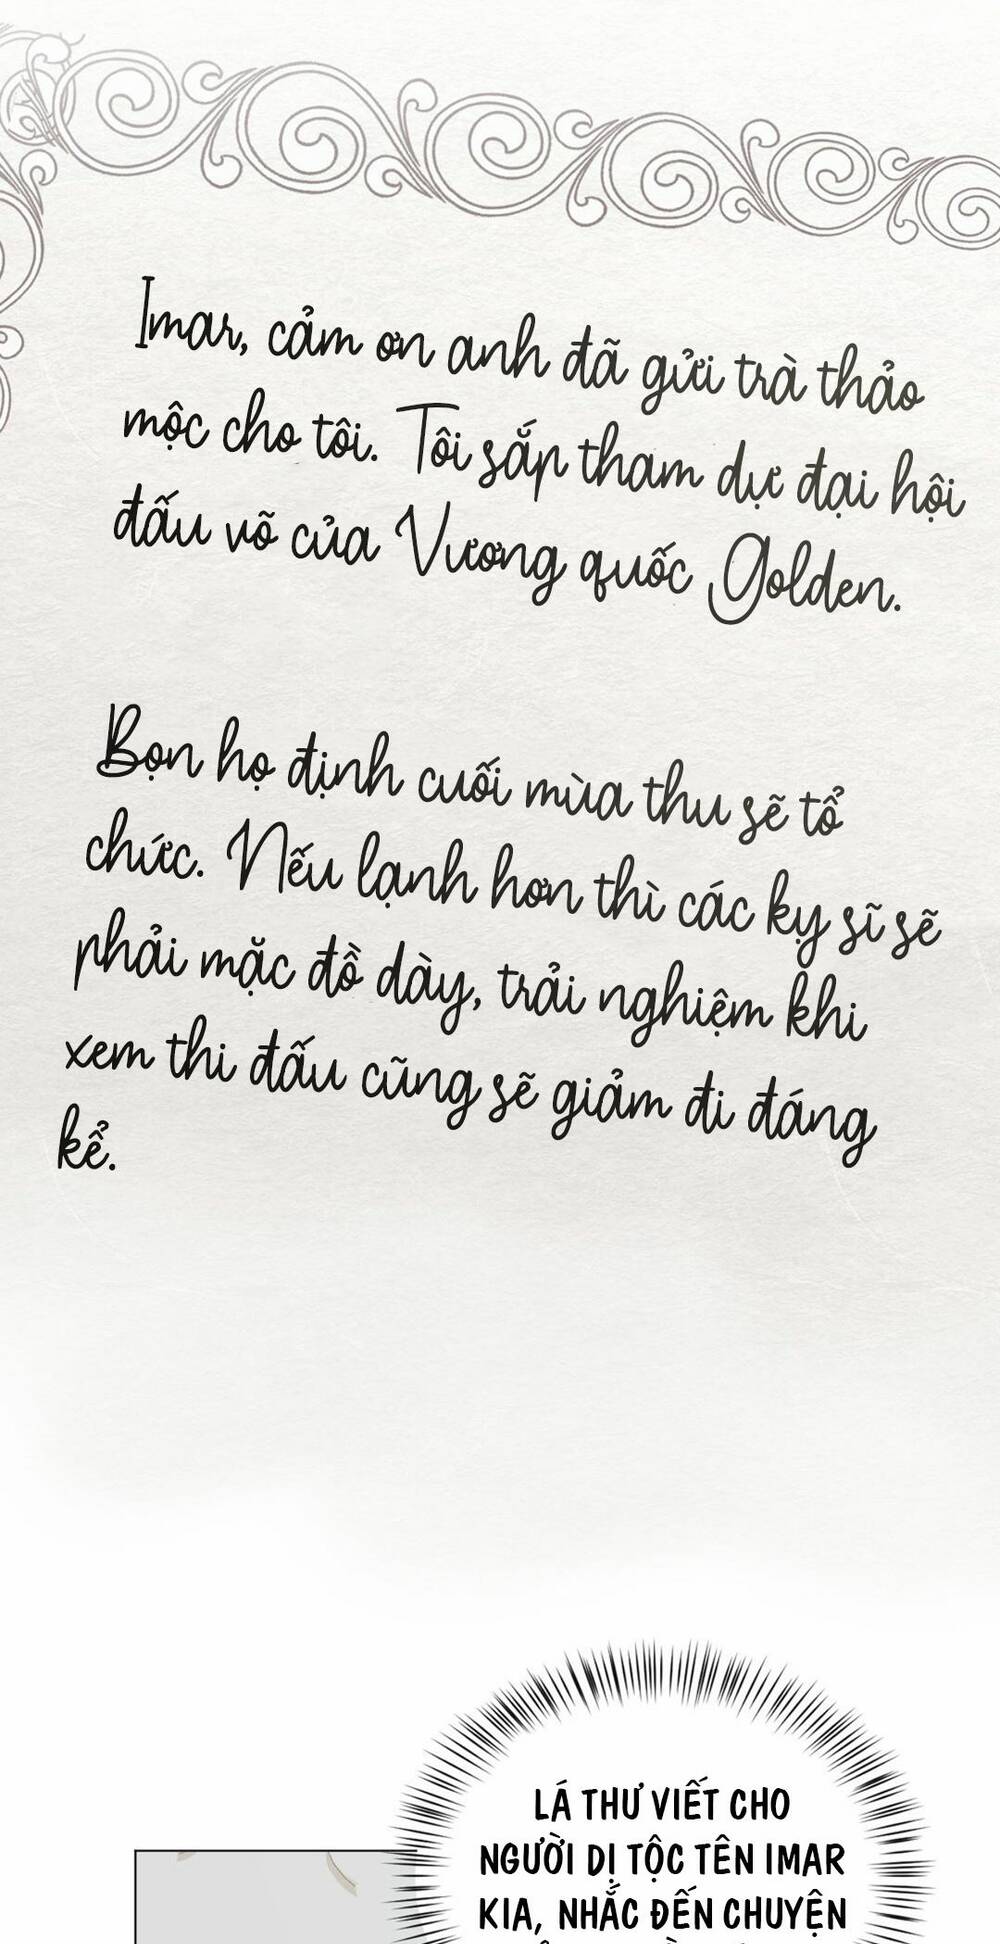 Imar, cảm ơn anh đã gửi trà thảo
mộc cho tôi. Tôi sắp tham dự đại hội
đấu võ của Vương quốc Golden.
Bọn họ định cuối mùa thu sẽ tổ
chức. Nếu lạnh hơn thì các kỵ sĩ sẽ
phải mặc đồ dày, trải nghiệm khi
xem thi đấu cũng sẽ giảm đi đáng
kể.
LÁ THƯ VIẾT CHO
NGƯỜI DỊ TỘC TÊN IMAR
KIA, NHẮC ĐẾN CHUYỆN